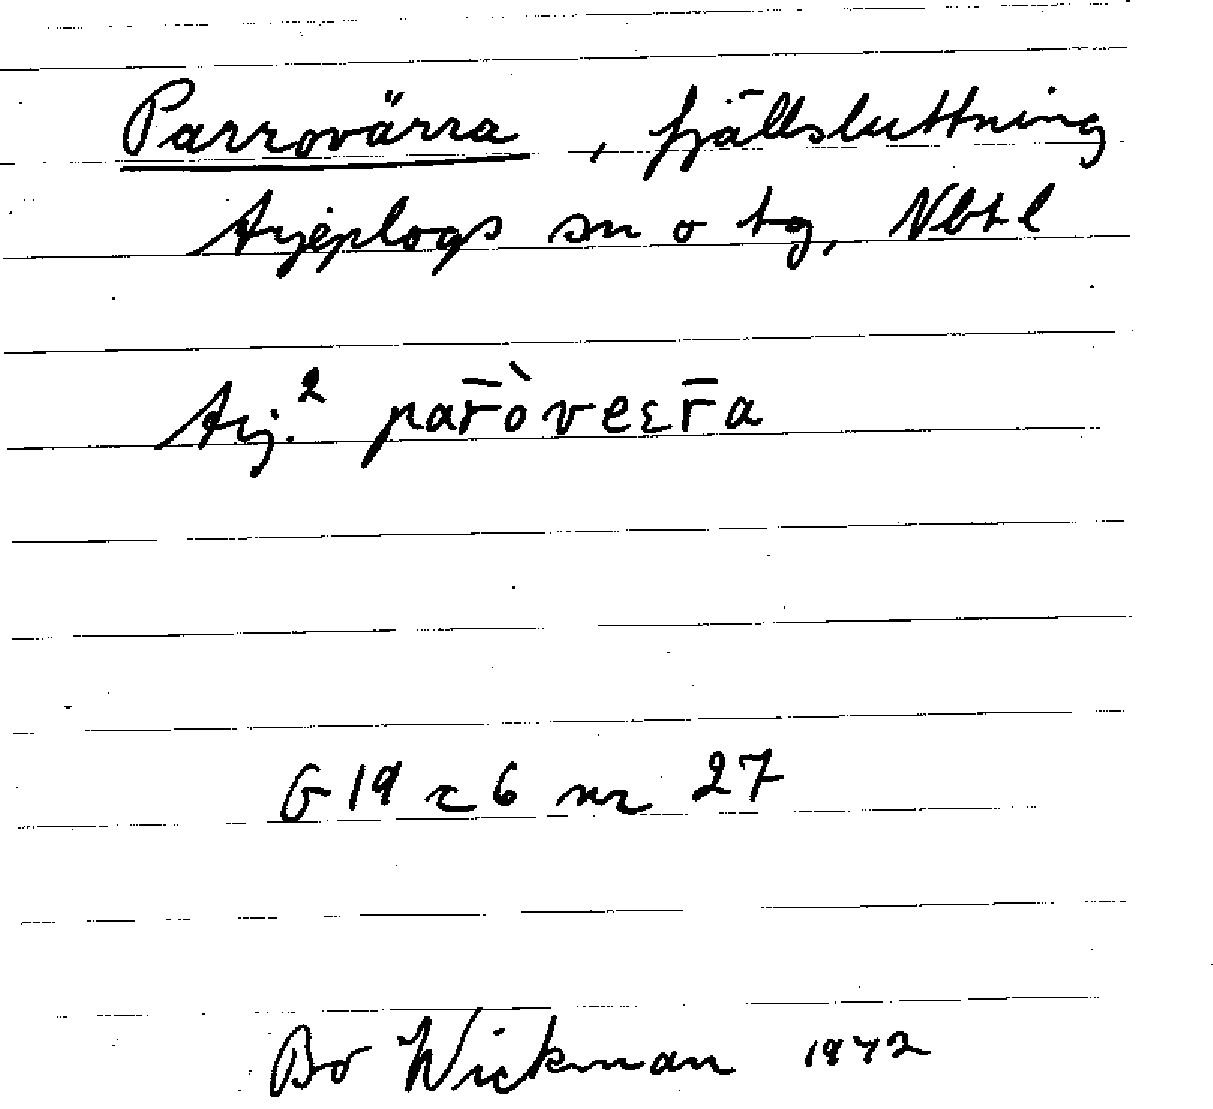 Parrovärra, fjällsluttning
Arjeplogs sn o tg, Nbtl
Arj.² par̄òveεr̄a
G 19 c 6 nr 27
Bo Wickman 1942